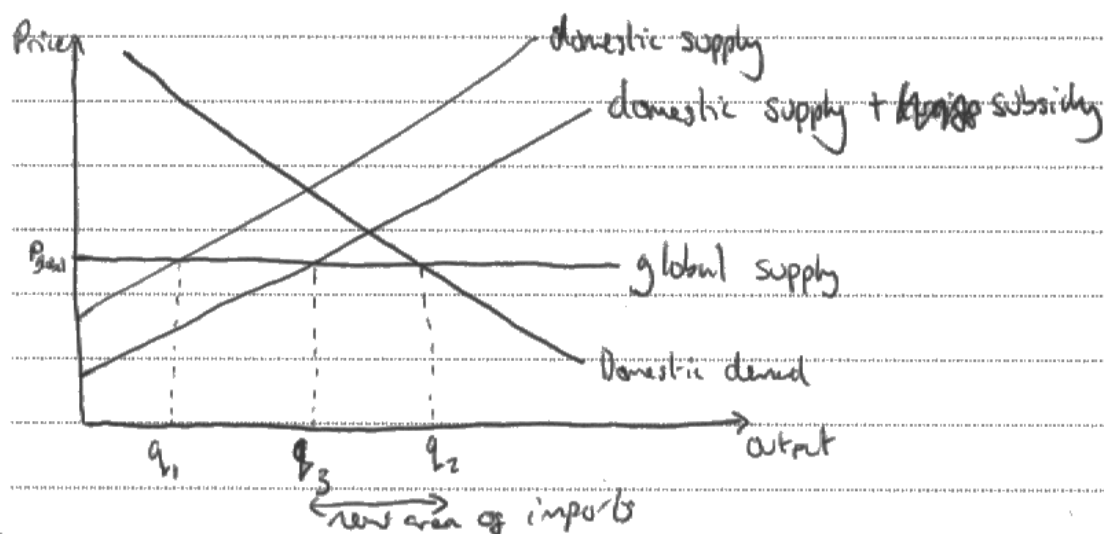 Price
domestic supply
domestic supply + subsidy
global supply
Domestic demand
output
q1
q3
q2
new area of imports